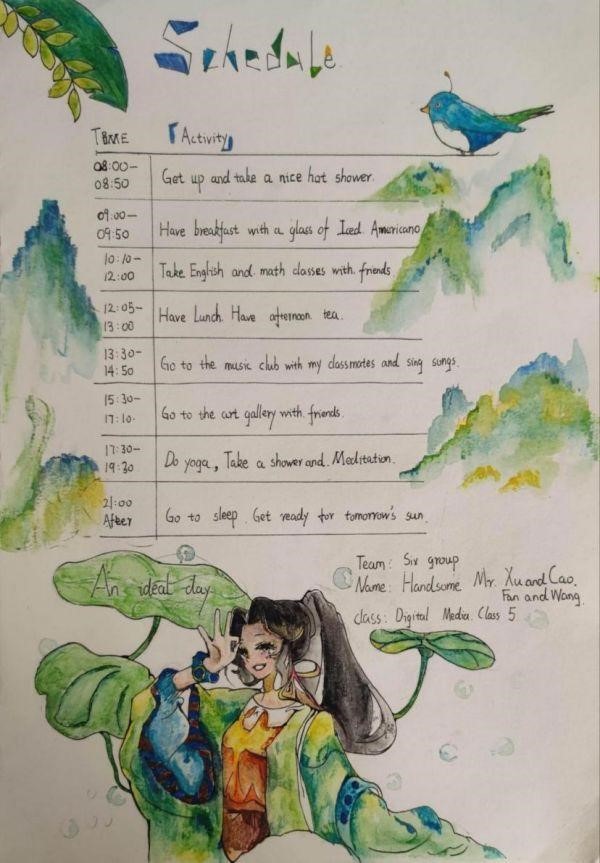 Schedule
TIME 「Activity」
08:00-
08:50
Get up and take a nice hot shower.
09:00-
09:50
Have breakfast with a glass of Iced Americano
10:10-
12:00
Take English and math classes with friends
12:05-
13:00
Have Lunch. Have afternoon tea.
13:30-
14:50
Go to the music club with my classmates and sing songs.
15:30-
17:10.
Go to the art gallery with friends.
17:30-
19:30
Do yoga, Take a shower and Meditation.
21:00
After
Go to sleep. Get ready for tomorrow's sun.
An ideal day
Team: Six group
Name: Handsome Mr. Xu and Cao.
Fan and Wang.
class: Digital Media Class 5